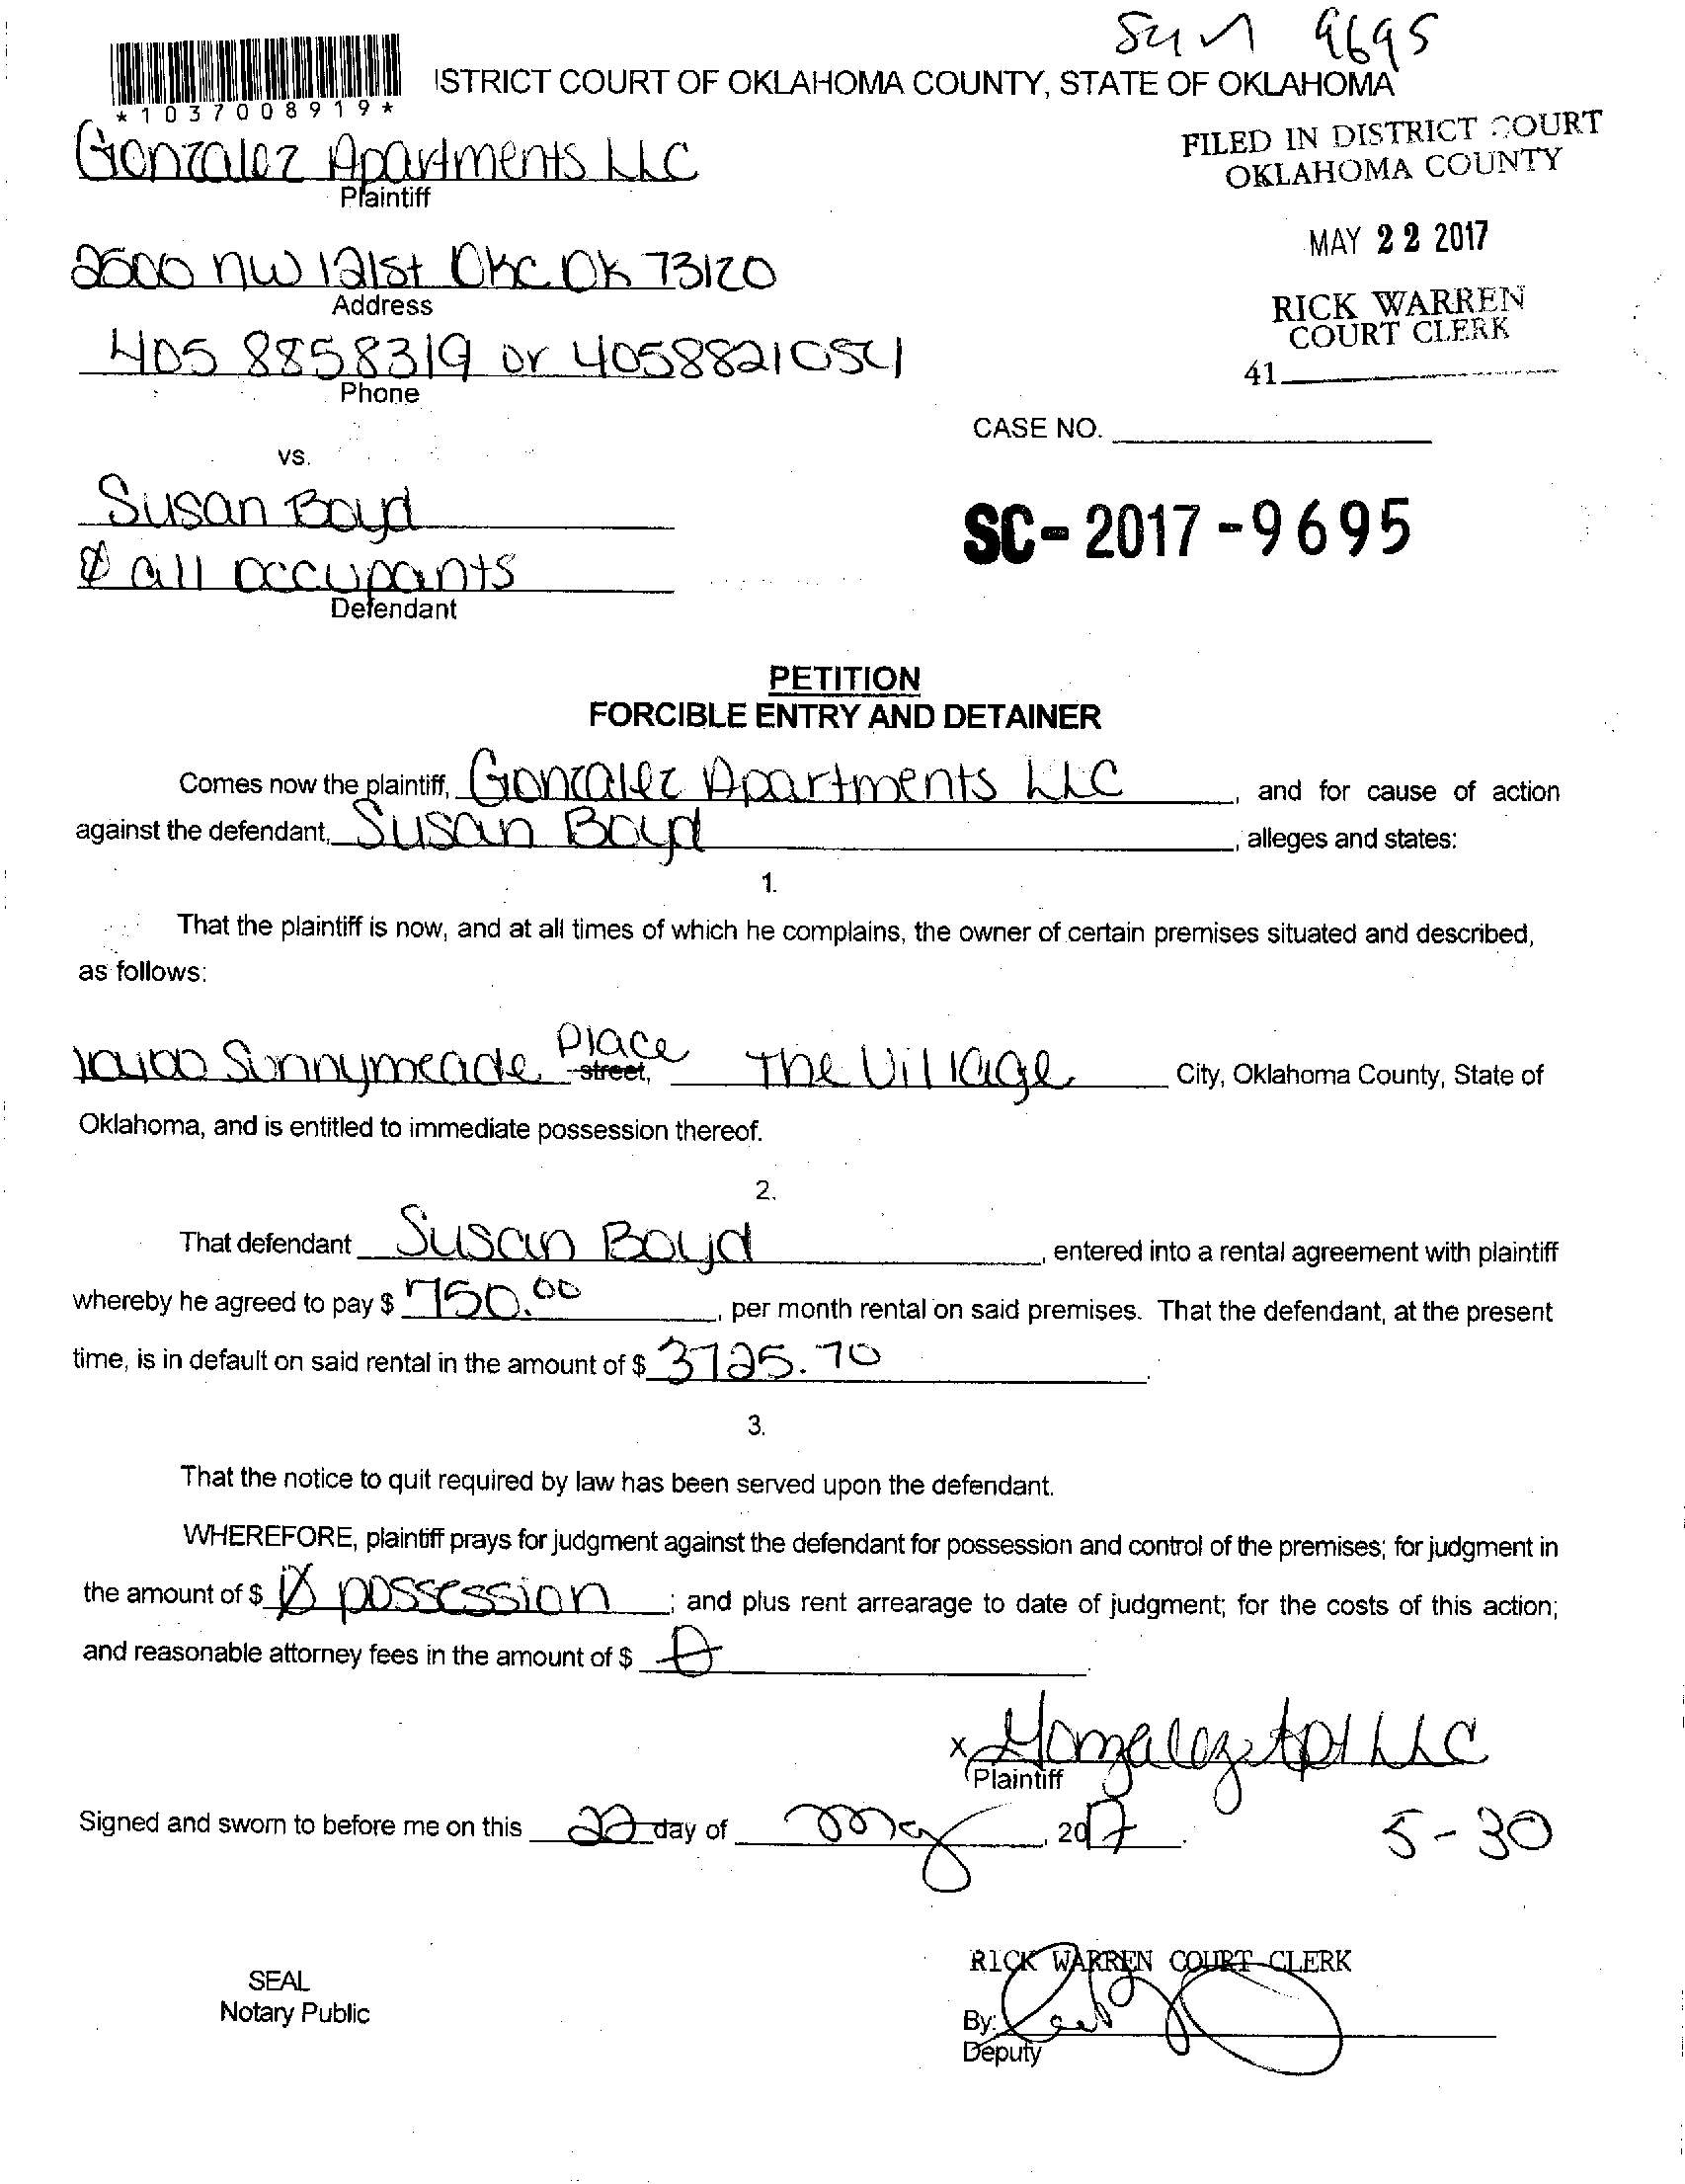 9695
*1037008919*
ISTRICT COURT OF OKLAHOMA COUNTY, STATE OF OKLAHOMA
FILED IN DISTRICT COURT
OKLAHOMA COUNTY
Gonzalez Apartments LLC
Plaintiff
MAY 22 2017
2500 NW 121st OKC OK 73120
Address
RICK WARREN
COURT CLERK
405 8858319 or 4058821054
Phone
41
CASE NO.
vs.
Susan Boyd
SC-2017-9695
& all occupants
Defendant
PETITION
FORCIBLE ENTRY AND DETAINER
Comes now the plaintiff, Gonzalez Apartments LLC, and for cause of action
against the defendant, Susan Boyd, alleges and states:
1.
That the plaintiff is now, and at all times of which he complains, the owner of certain premises situated and described,
as follows:
Sunnymeade Place street, The Village City, Oklahoma County, State of
Oklahoma, and is entitled to immediate possession thereof.
2.
That defendant Susan Boyd, entered into a rental agreement with plaintiff
whereby he agreed to pay $ 750.00, per month rental on said premises. That the defendant, at the present
time, is in default on said rental in the amount of $ 3725.70.
3.
That the notice to quit required by law has been served upon the defendant.
WHEREFORE, plaintiff prays for judgment against the defendant for possession and control of the premises; for judgment in
the amount of $ possession; and plus rent arrearage to date of judgment; for the costs of this action;
and reasonable attorney fees in the amount of $
x Gonzalez Apt LLC
Plaintiff
Signed and sworn to before me on this 22 day of May, 2017.
5-30
RICK WARREN COURT CLERK
SEAL
Notary Public
By:
Deputy